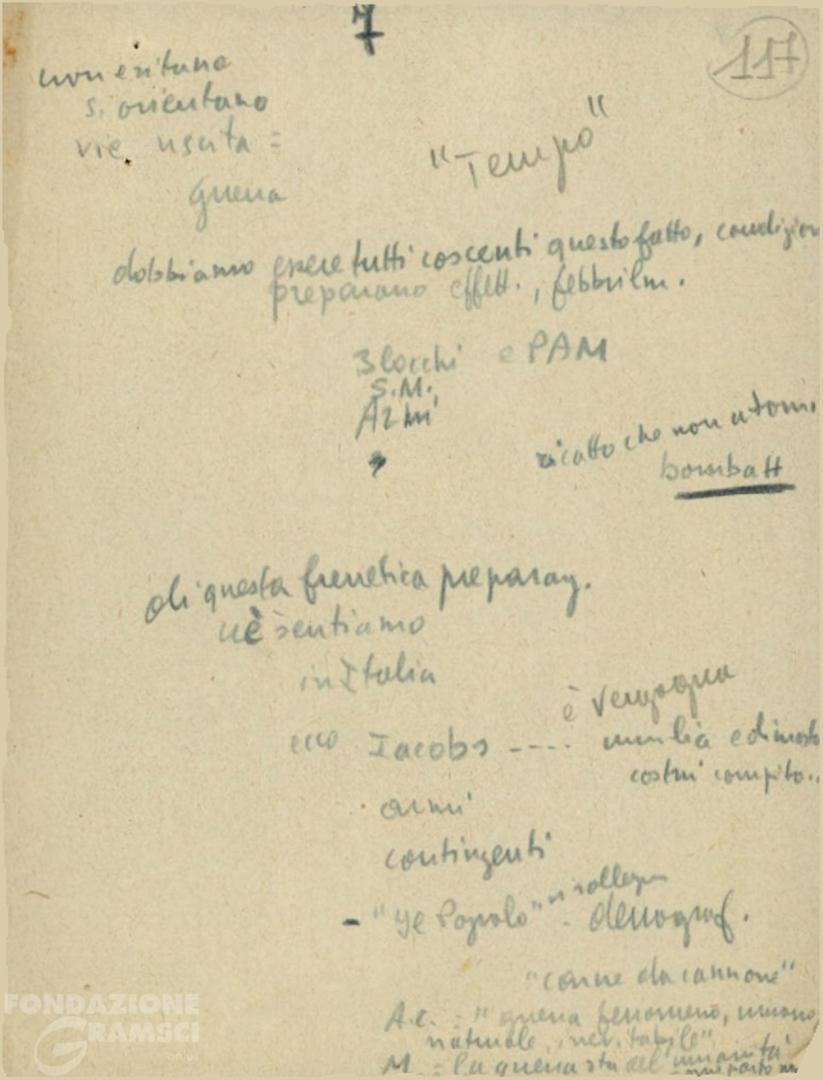 7
117
non esitano
si orientano
vie uscita =
guerra
"Tempo"
dobbiamo essere tutti coscenti questo fatto, condizion
preparano effett., febbrilm.
Blocchi e PAM
S.M.
Armi
ricatto che non atomi
bombatt
di questa frenetica preparaz.
ne sentiamo
in Italia
ecco Iacobs ----
è vergogna
umilia e dimostr
costui compito..
armi
contingenti
- "Il Popolo" si rallegra
- demograf.
"carne da cannone"
A.C. : "guerra fenomeno, umano,
naturale, inevitabile"
M = la guerra sta
FONDAZIONE
GRAMSCI
onlus